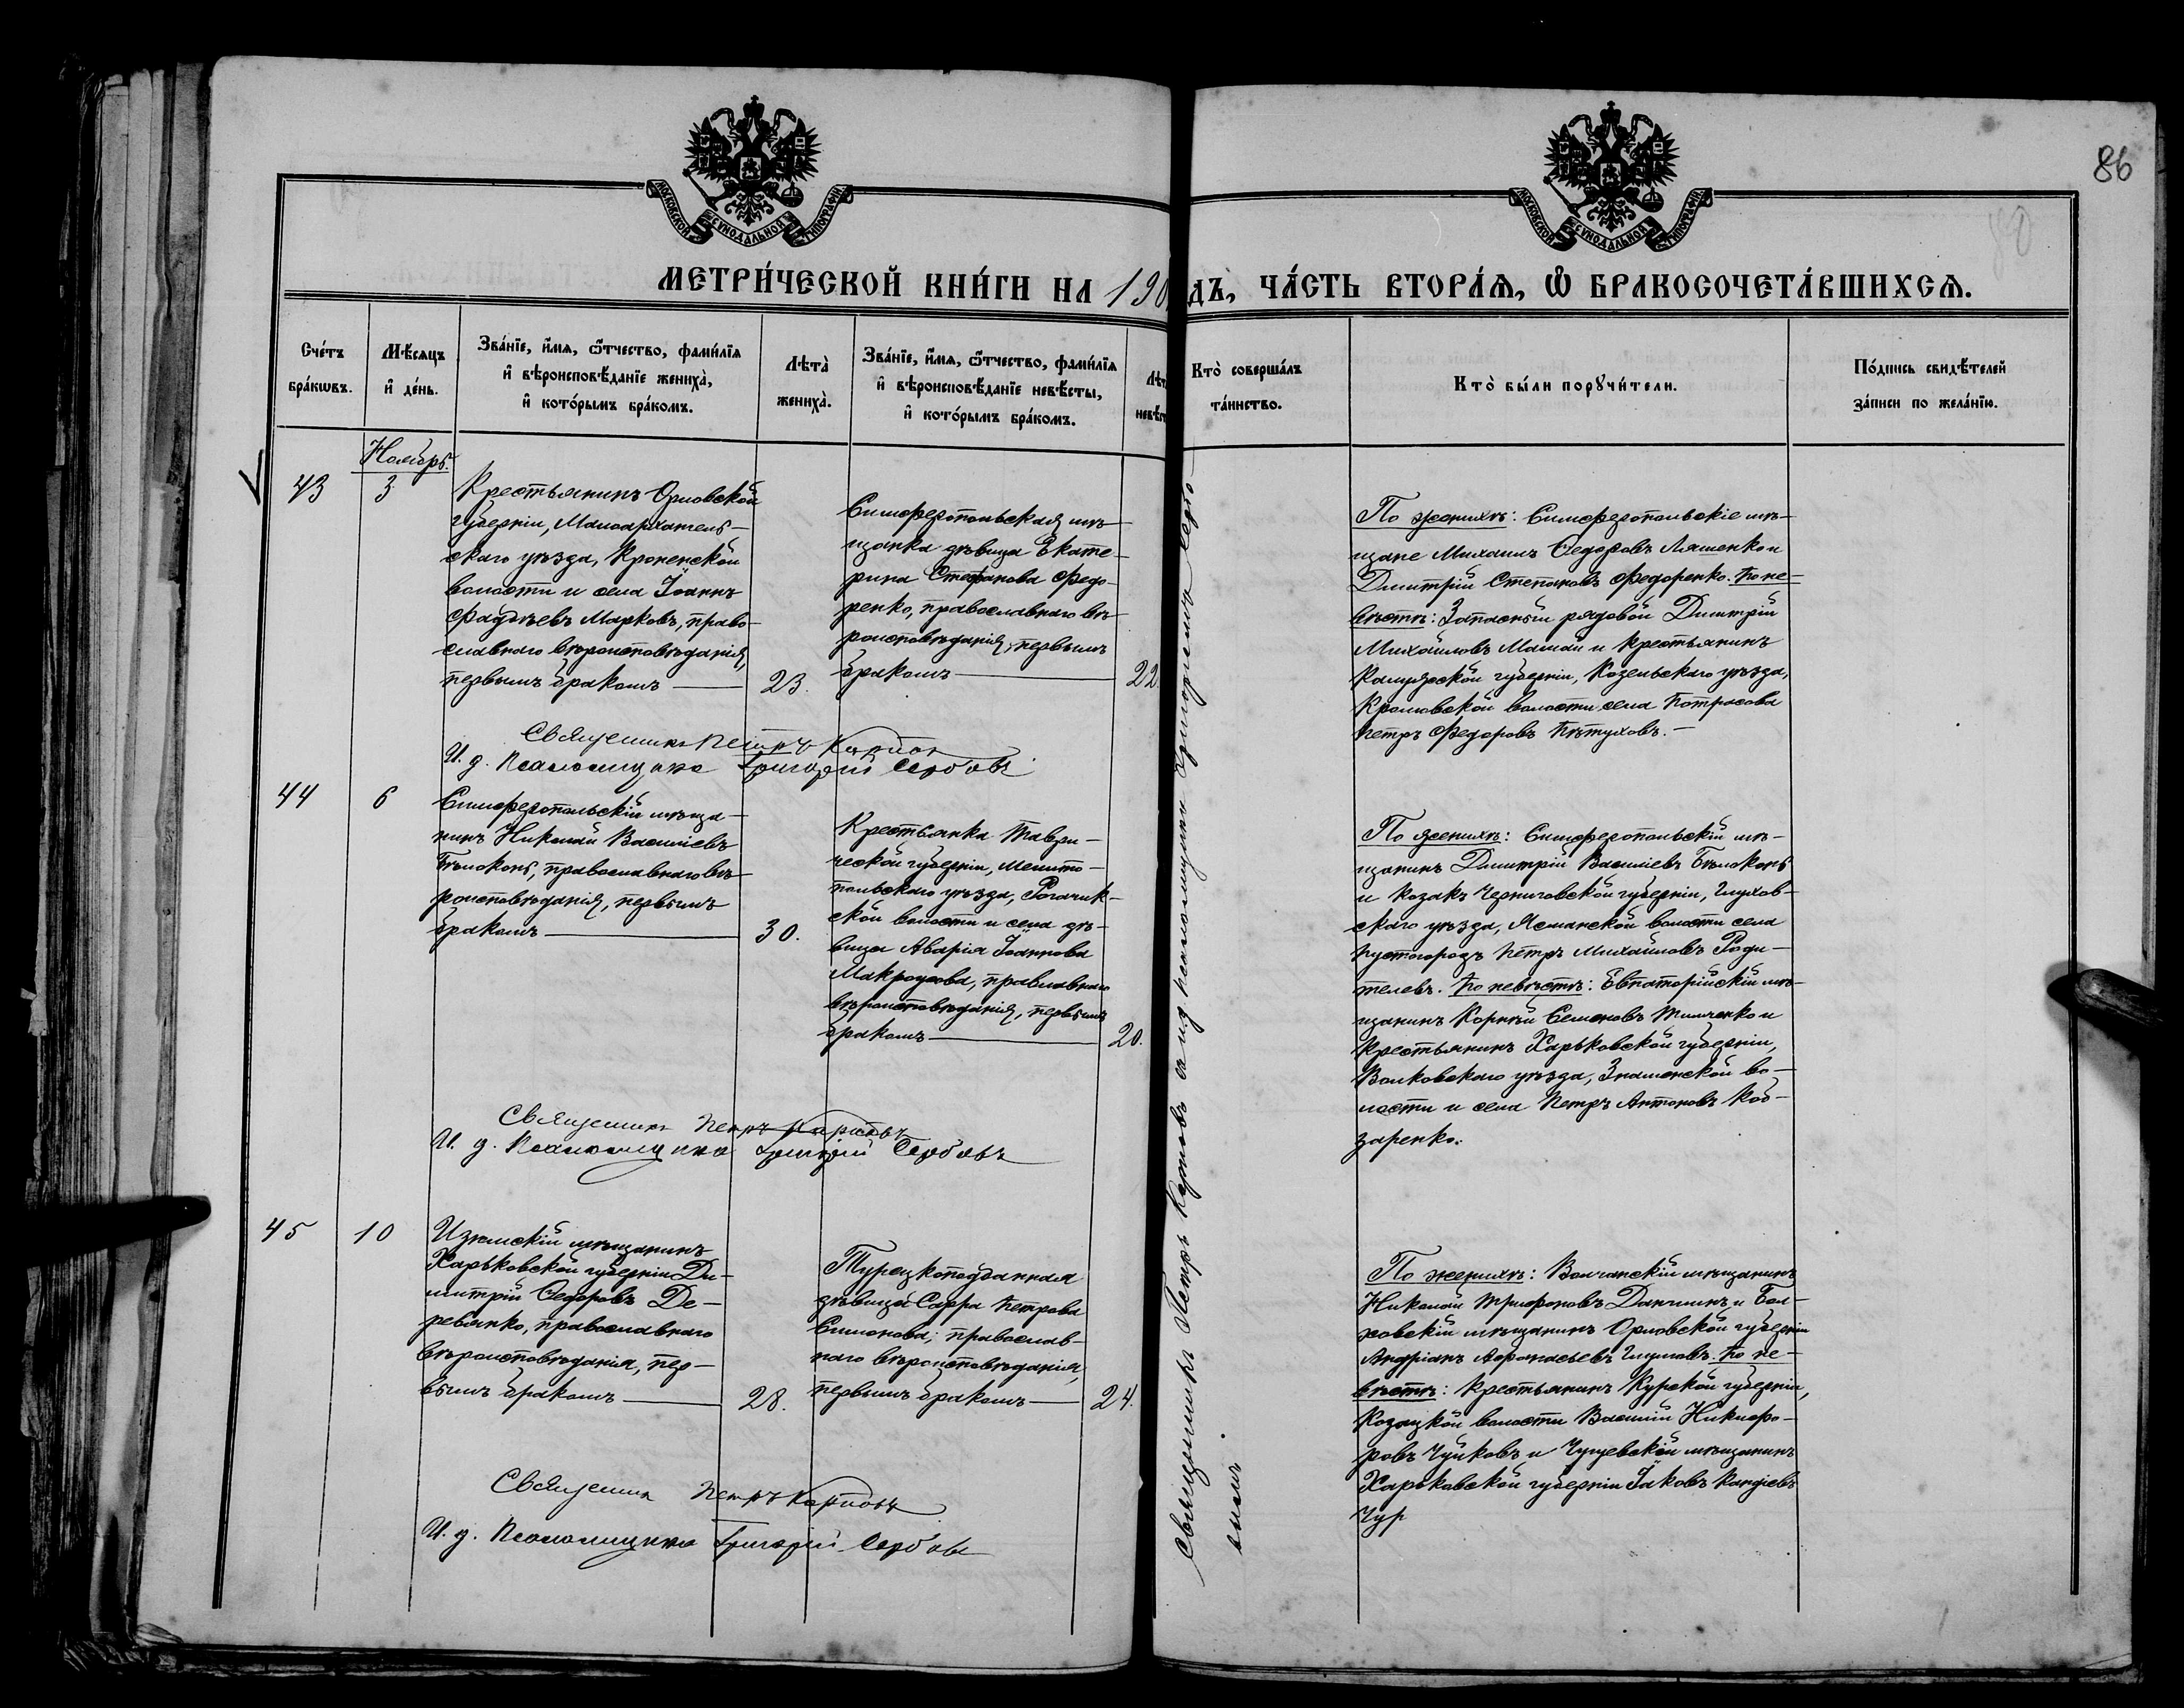 86
МОСКОВСКОЙ СѴНОДАЛЬНОЙ ТИПОГРАФІИ
МОСКОВСКОЙ СѴНОДАЛЬНОЙ ТИПОГРАФІИ
МЕТРИ́ЧЕСКОЙ КНИ́ГИ НА 190
ДЪ, ЧА́СТЬ ВТОРА́Ѧ, Ѽ БРАКОСОЧЕТА́ВШИХСѦ.
Сче́тъ
бра́кѡвъ.
Мѣ́сѧцъ
и҆ де́нь.
Зва́нїе, и҆́мѧ, ѻ҆́тчество, фами́лїѧ
и҆ вѣроисповѣ́данїе жениха̀,
и҆ кото́рымъ бра́комъ.
Лѣта̀
жениха̀.
Зва́нїе, и҆́мѧ, ѻ҆́тчество, фами́лїѧ
и҆ вѣроисповѣ́данїе невѣ́сты,
и҆ кото́рымъ бра́комъ.
Кто̀ соверша́лъ
та́инство.
Кто̀ бы́ли порꙋчи́тели.
По́дпись свидѣ́телей
за́писи по жела́нїю.
Ноябрь.
43
3
Крестьянинъ Орловской
губерніи, Малоархангель-
скаго уѣзда,
волости и села Іоаннъ
Фаддѣевъ Марковъ, право-
славнаго вѣроисповѣданія,
первымъ бракомъ
23.
Симферопольская мѣ-
щанка дѣвица Екате-
рина Стефанова Федо-
ренко, православнаго вѣ-
роисповѣданія, первымъ
бракомъ
22.
По женихѣ: Симферопольскіе мѣ-
щане Михаилъ Ѳедоровъ Ляшенко и
Дмитрій Степановъ Федоренко. По не-
вѣстѣ: Запасный рядовой Дмитрій
Михайловъ Мамай и крестьянинъ
Калужской губерніи, Козельскаго уѣзда,
волости села
Петръ Федоровъ Пѣтуховъ.
Священникъ Петръ Карповъ
И. д. Псаломщика Григорій Сербовъ
44
6
Симферопольскій мѣща-
нинъ Николай Васильевъ
Бѣлоконь, православнаго вѣ-
роисповѣданія, первымъ
бракомъ
30.
Крестьянка Таври-
ческой губерніи, Мелито-
польскаго уѣзда, Рогачик-
ской волости и села дѣ-
вица Іоаннова
Макроусова, правлавнаго
вѣроисповѣданія, первымъ
бракомъ
20.
По женихѣ: Симферопольскій мѣ-
щанинъ Дмитрій Васильевъ Бѣлоконь
и козакъ Черниговской губерніи, Глухов-
скаго уѣзда, Ясманской волости села
Пустогородъ Петръ Михайловъ Роди-
телевъ. По невѣстѣ: Евпаторійскій мѣ-
щанинъ Корнѣй Семеновъ Тимченко и
крестьянинъ Харьковской губерніи,
Валковскаго уѣзда, Знаменской во-
лости и села Петръ Антоновъ Коб-
заренко.
Священникъ Петръ Карповъ
И. д. Псаломщика Григорій Сербовъ
45
10
Изюмскій мѣщанинъ
Харьковской губерніи Ди-
митрій Ѳедоровъ Де-
ревянко, православнаго
вѣроисповѣданія, пер-
вымъ бракомъ
28.
Турецкоподданная
дѣвица Сарра Петрова
Симонова; православ-
наго вѣроисповѣданія,
первымъ бракомъ
24.
По женихѣ: Волчанскій мѣщанинъ
Николай Трифоновъ Данчинъ и Бол-
ховскій мѣщанинъ Орловской губерніи
Андріанъ Аѳонасьевъ Глумовъ. По не-
вѣстѣ: крестьянинъ Курской губерніи,
Козацкой волости Василій Никифо-
ровъ Чуйковъ и Чугуевскій мѣщанинъ
Харьковской губерніи Іаковъ
Чур
Священникъ Петръ Карповъ
И. д. Псаломщика Григорій Сербовъ
Священникъ Петръ Карповъ съ и. д. псаломщика Григоріемъ Сербо-
вымъ.